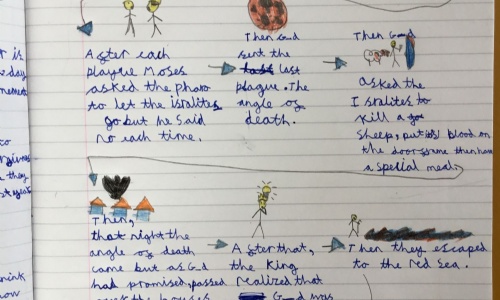 After each
plague Moses
asked the pharo
to let the isralites
go but he said
no each time.
Then God
sent the
last
plague. The
angle of
death.
Then G-d
asked the
Isralites to
kill a
sheep, put blood on
the door
a special meal.
Then,
that night the
angle of death
came but as G-d
had promised, passed
the houses
After that,
the King
realized that
G-d was
Then they escaped
to the Red Sea.